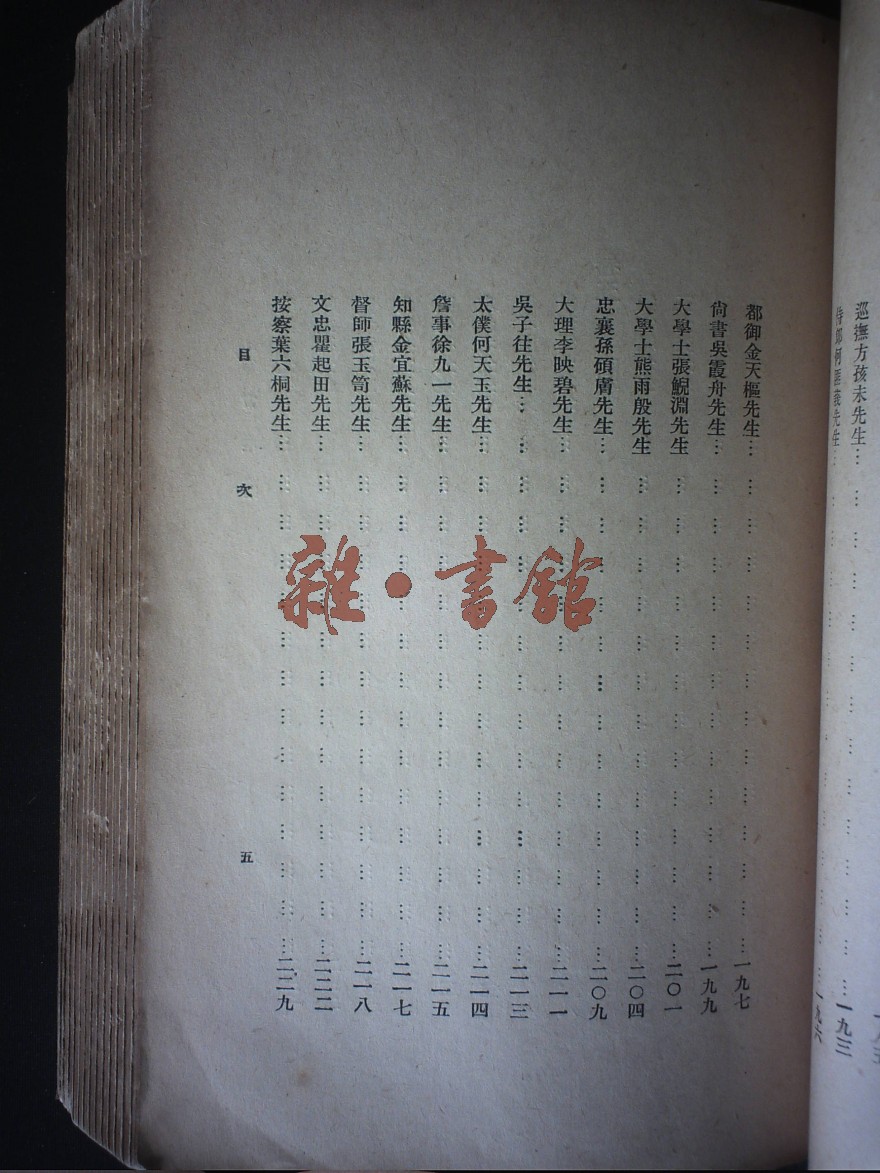 巡撫方孩未先生… … … … … … … … … … … … … …一九三
先生… … … … … … … … … … … … … …一九六
都御金天樞先生… … … … … … … … … … … … … …一九七
尙書吳霞舟先生… … … … … … … … … … … … … …一九九
大學士張鯢淵先生 … … … … … … … … … … … … …二〇一
大學士熊雨殷先生 … … … … … … … … … … … … …二〇四
忠襄孫碩膚先生… … … … … … … … … … … … … …二〇九
大理李映碧先生… … … … … … … … … … … … … …二一一
吳子往先生… … … … … … … … … … … … … … …二一三
太僕何天玉先生… … … … … … … … … … … … … …二一四
詹事徐九一先生… … … … … … … … … … … … … …二一五
知縣金宜蘇先生… … … … … … … … … … … … … …二一七
督師張玉笥先生… … … … … … … … … … … … … …二一八
文忠瞿起田先生… … … … … … … … … … … … … …二二二
按察葉六桐先生… … … … … … … … … … … … … …二二九
目次 五
雜·書館